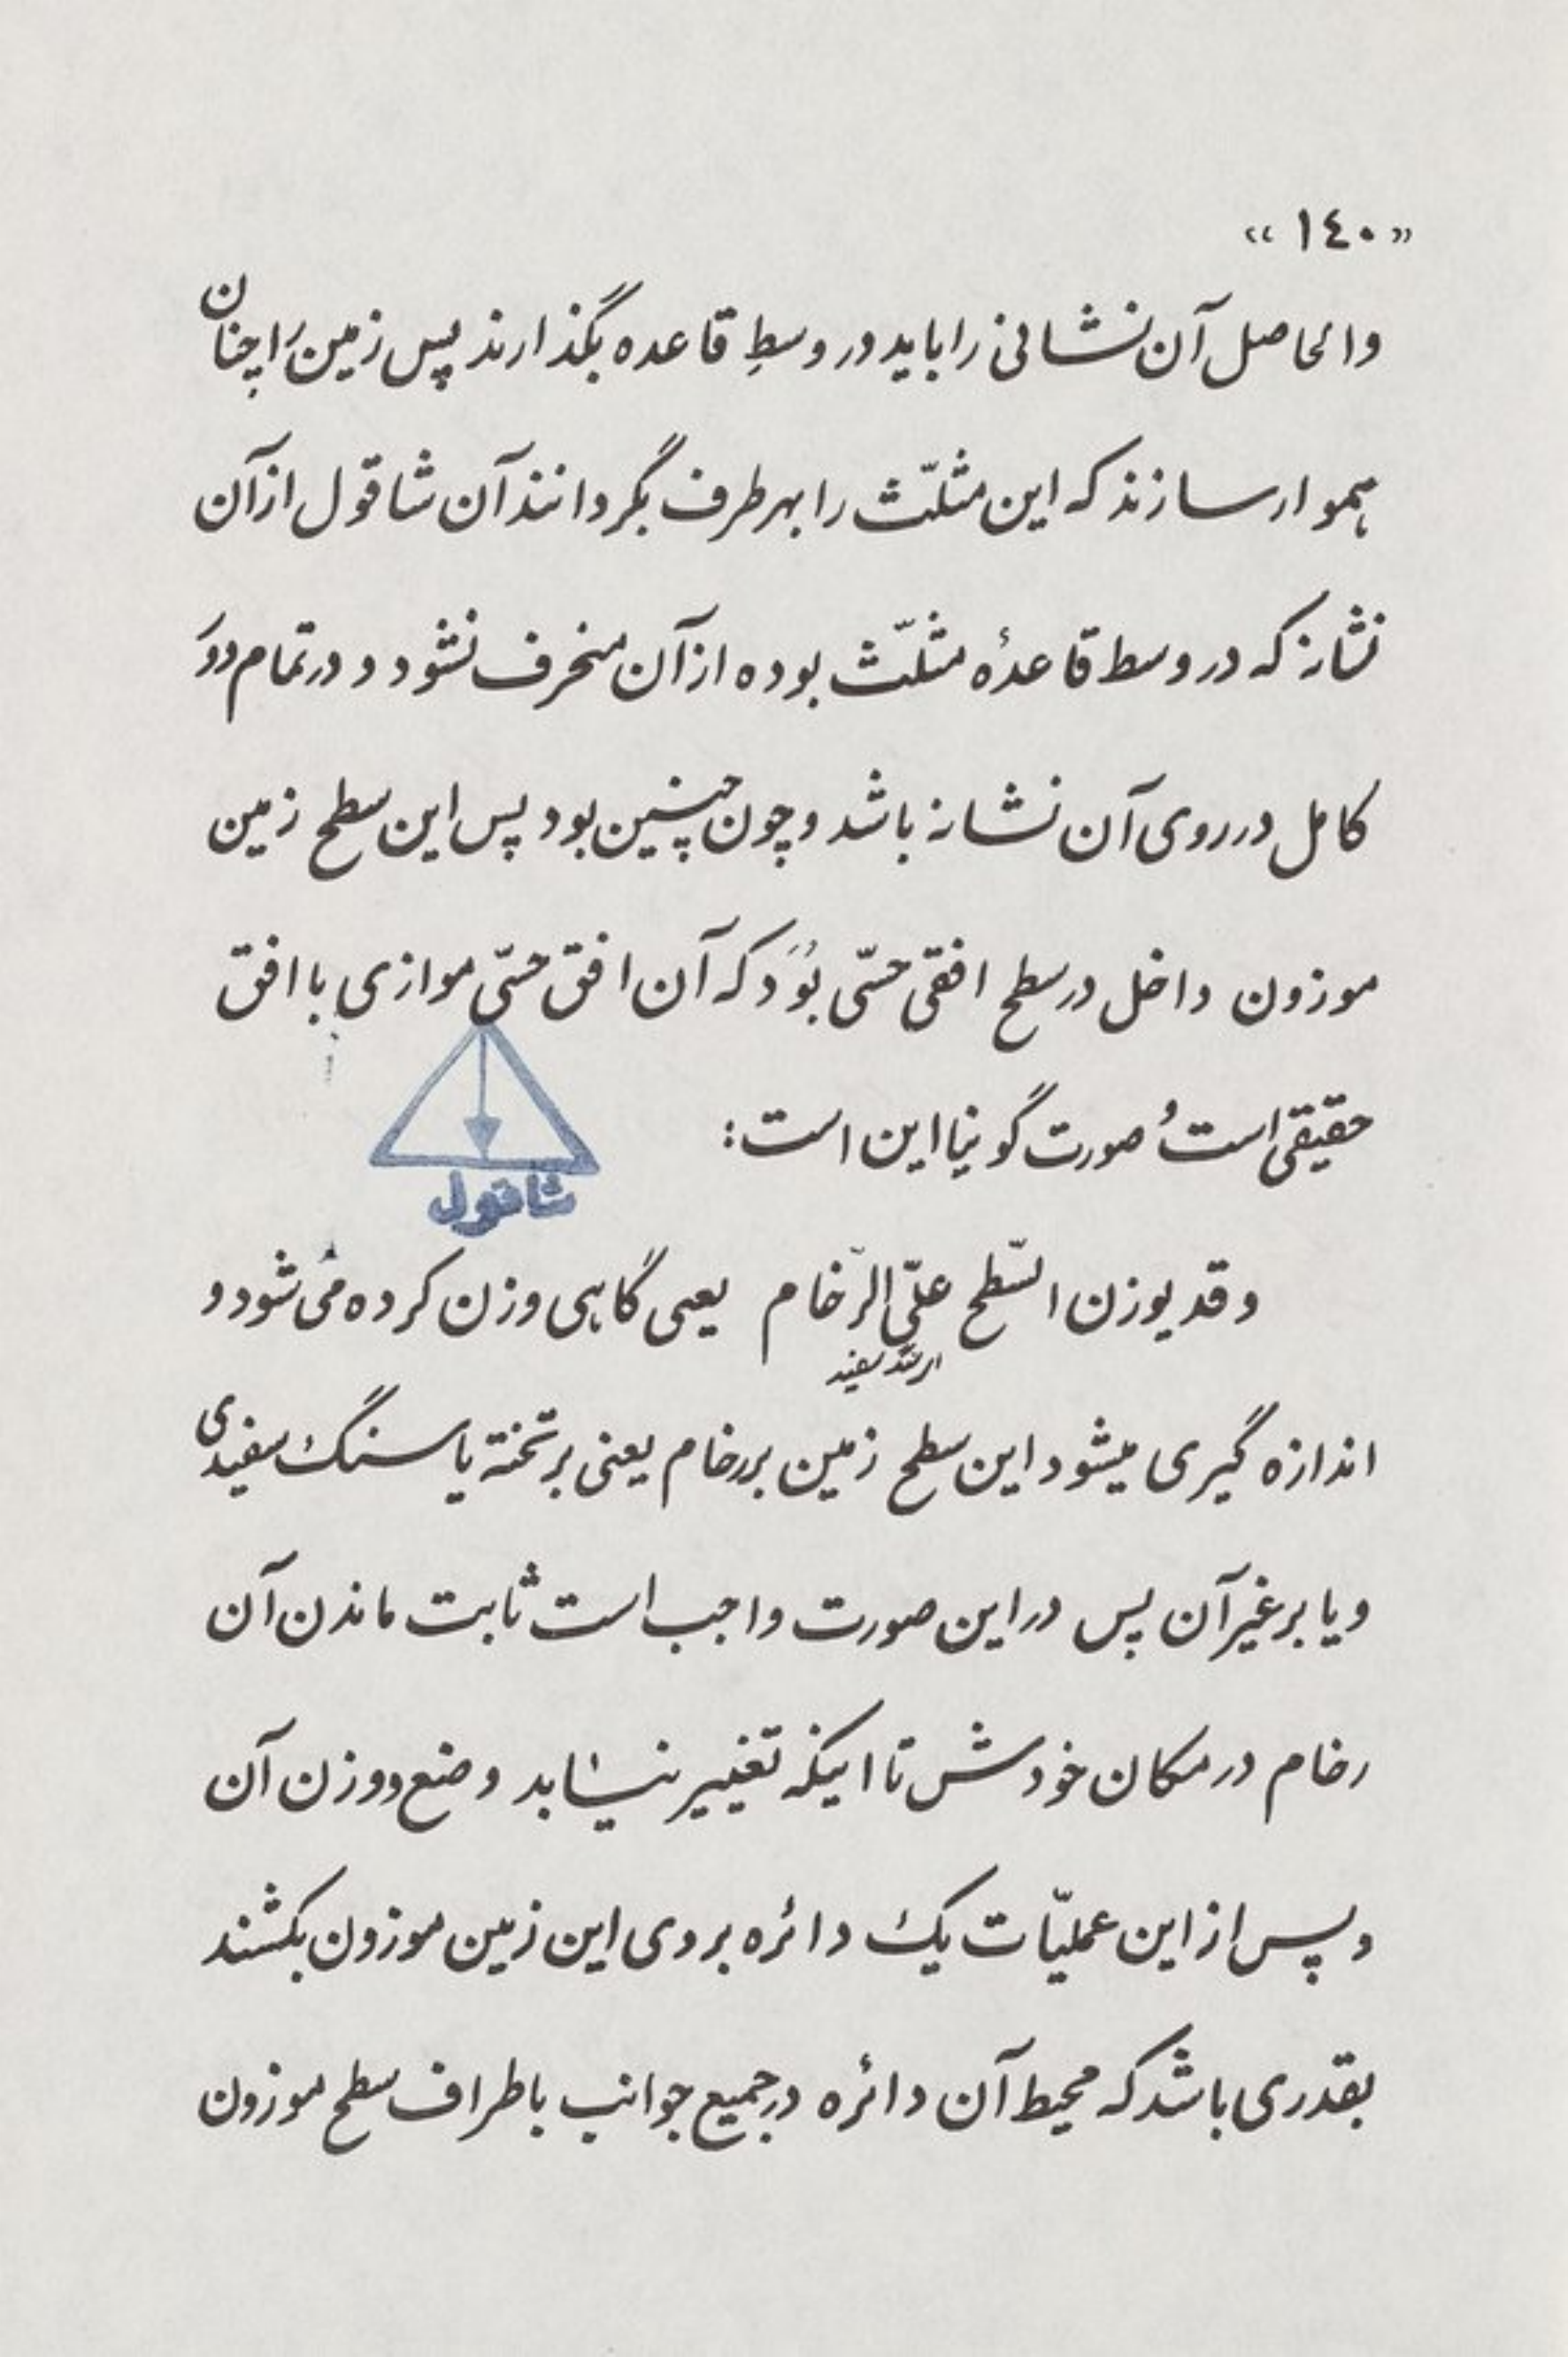 « ١٤٠ »
والحاصل آن نشانی را باید در وسطِ قاعده بگذارند پس زمین را چنان
هموار سازند که این مثلّث را بهر طرف بگردانند آن شاقول از آن
نشانه که در وسط قاعدهٔ مثلّث بوده از آن منحرف نشود و در تمام دور
کامل در روی آن نشانه باشد و چون چنین بود پس این سطح زمین
موزون داخل در سطح افقی حسّی بُوَد که آن افق حسّی موازی با افق
حقیقی است و صورت گونیا این است:
شاقول
وقد یوزن السّطح علی الرّخام یعنی گاهی وزن کرده می شود و
سفید
اندازه گیری میشود این سطح زمین بر رخام یعنی بر تخته یا سنگ سفیدی
و یا بر غیر آن پس در این صورت واجب است ثابت ماندن آن
رخام در مکان خودش تا اینکه تغییر نیابد وضع و وزن آن
و پس از این عملیّات یک دائره بروی این زمین موزون بکشند
بقدری باشد که محیط آن دائره در جمیع جوانب باطراف سطح موزون